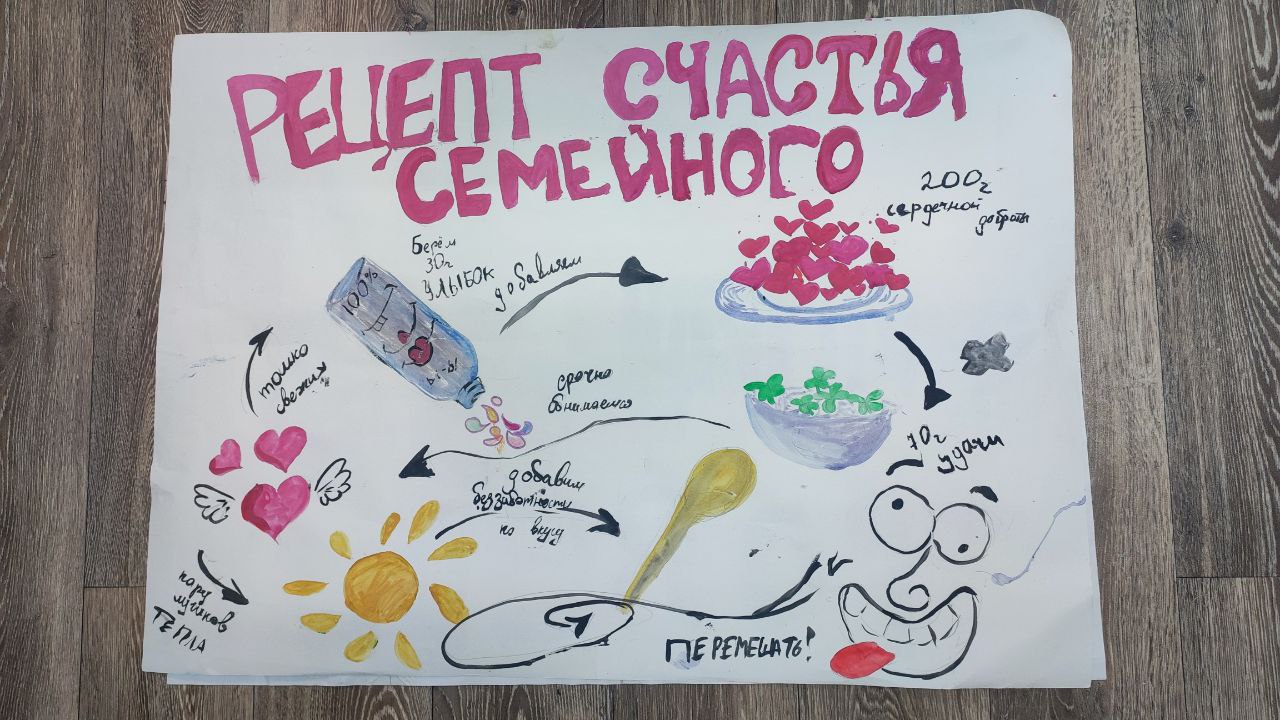 РЕЦЕПТ СЧАСТЬЯ
СЕМЕЙНОГО
Берём
30г
УЛЫБОК
100%
добавляем
200г
сердечной
доброты
70г
удачи
срочно
обнимаемся
только
свежих
пару
лучиков
ТЕПЛА
добавим
беззаботности
по вкусу
ПЕРЕМЕШАТЬ!